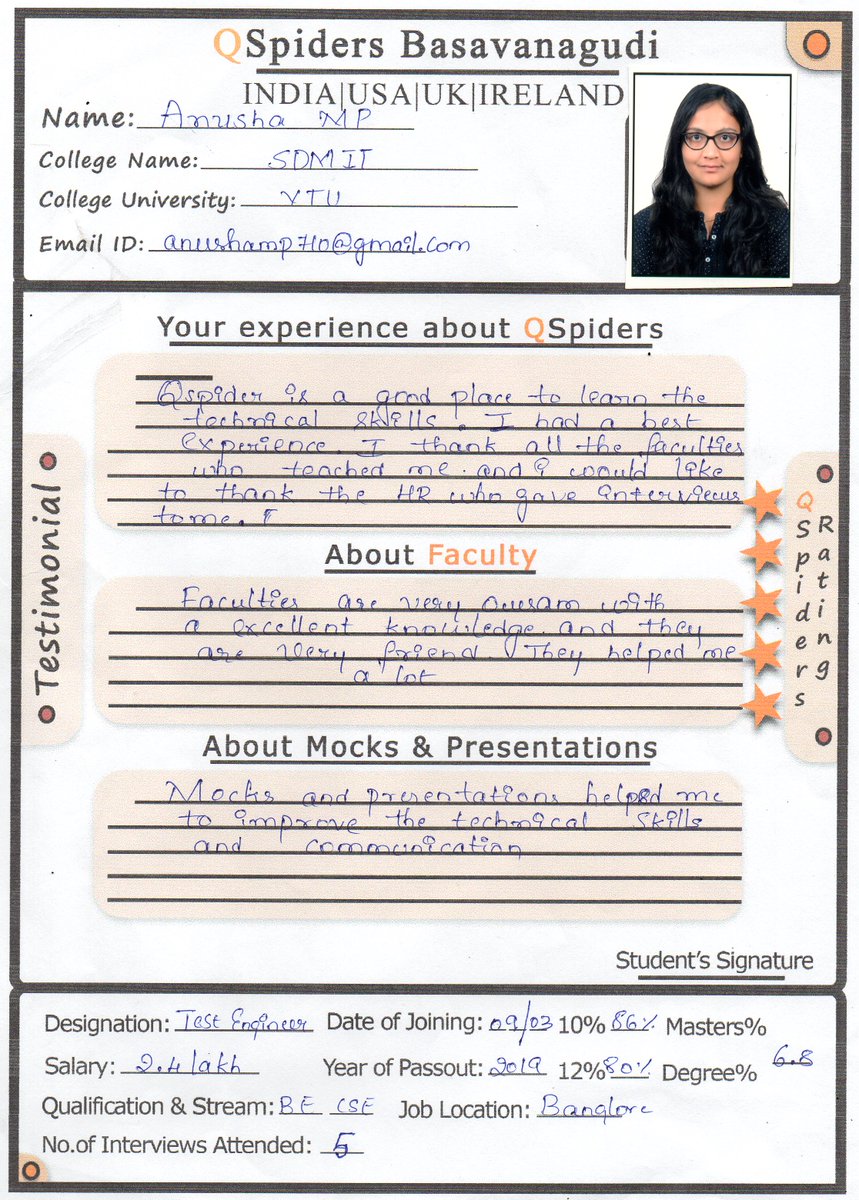 QSpiders Basavanagudi
INDIA|USA|UK|IRELAND
Name: Anusha MP
College Name: SDMIT
College University: VTU
Email ID: anushamp710@gmail.com
Your experience about QSpiders
Qspider is a good place to learn the
technical skills. I had a best
experience. I thank all the faculties
who teached me. and i would like
to thank the HR who gave interviews
to me.
About Faculty
Faculties are very awesam with
a excellent knowledge. and they
are very friend. They helped me
a lot
About Mocks & Presentations
Mocks and presentations helped me
to improve the technical skills
and communication
Testimonial
QSpiders
Rating
Student's Signature
Designation: Test Engineer Date of Joining: 09/03 10% 86% Masters%
Salary: 2.4 lakh Year of Passout: 2019 12% 80% Degree% 6.8
Qualification & Stream: BE CSE Job Location: Banglore
No.of Interviews Attended: 5